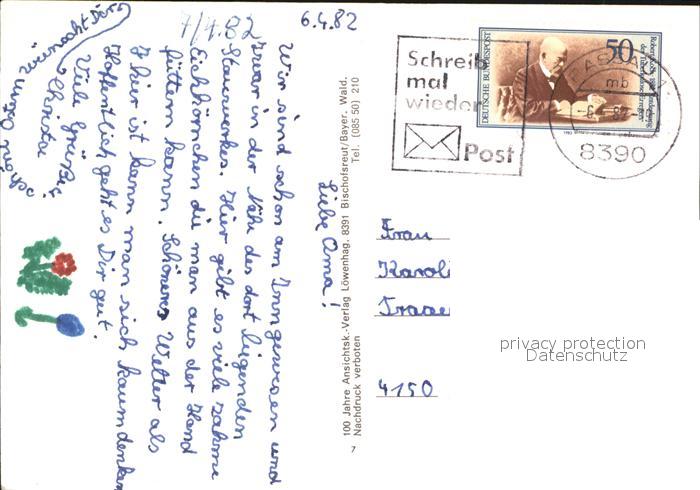 7/4.82
6.4.82
Liebe Oma!
Wir sind schon am Inn gewesen und
zwar in der Nähe des dort liegenden
Stauwerkes. Hier gibt es viele zahme
Eichhörnchen die man aus der Hand
füttern kann. Schöneres Wetter als
hier ist kann man sich kaum denken
Hoffentlich geht es Dir gut.
Viele Grüße,
Christa
wünscht Dörg
100 Jahre Ansichtsk.-Verlag Löwenhag. 8391 Bischofsreut/Bayer. Wald.
Nachdruck verboten Tel. (085 50) 210
7
Schreib
mal
wieder
Post
DEUTSCHE BUNDESPOST
50
PASSAU
mb
8390
Frau
4150
privacy protection
Datenschutz